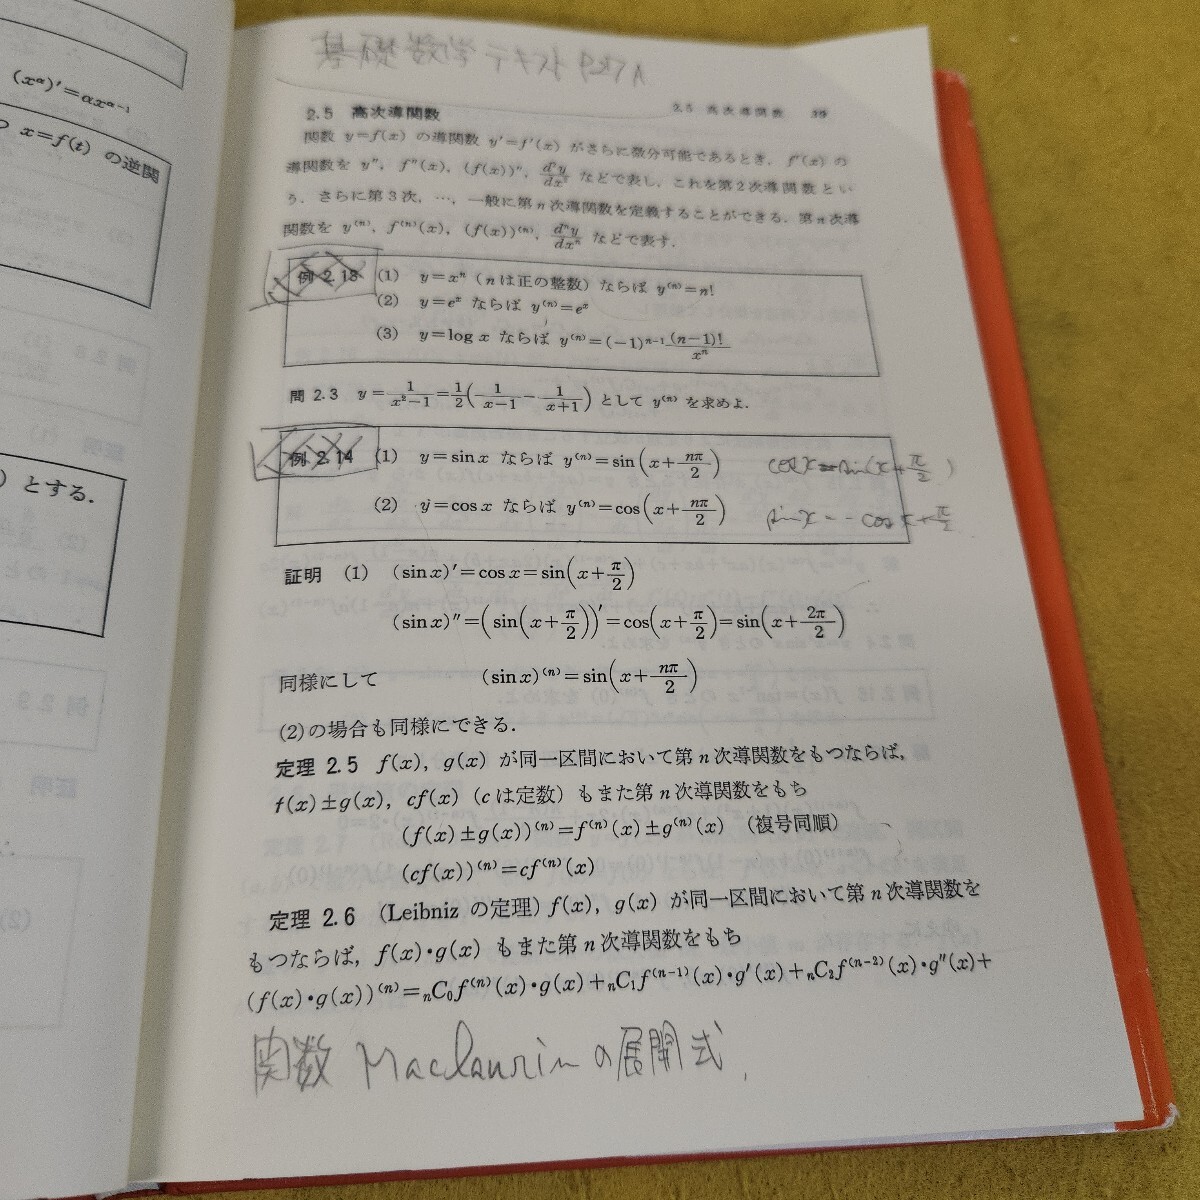 (x^α)'=αx^{α-1}
x=f(t) の逆関
) とする.
基礎数学テキスト
2.5 高次導関数 39
2.5 高次導関数
関数 y=f(x) の導関数 y'=f'(x) がさらに微分可能であるとき, f'(x) の
導関数を y'', f''(x), (f(x))'', d²y/dx² などで表し, これを第2次導関数とい
う. さらに第3次, …, 一般に第n次導関数を定義することができる. 第n次導
関数を y^{(n)}, f^{(n)}(x), (f(x))^{(n)}, dⁿy/dxⁿ などで表す.
例 2.13 (1) y=xⁿ (nは正の整数) ならば y^{(n)}=n!
(2) y=e^x ならば y^{(n)}=e^x
(3) y=log x ならば y^{(n)}=(-1)^{n-1} (n-1)!/xⁿ
問 2.3 y=1/(x²-1)=1/2(1/(x-1)-1/(x+1)) として y^{(n)} を求めよ.
例 2.14 (1) y=sin x ならば y^{(n)}=sin(x+nπ/2) cosx=sin(x+π/2)
(2) y=cos x ならば y^{(n)}=cos(x+nπ/2) sinx=-cosx+π/2
証明 (1) (sin x)'=cos x=sin(x+π/2)
(sin x)''=(sin(x+π/2))'=cos(x+π/2)=sin(x+2π/2)
同様にして (sin x)^{(n)}=sin(x+nπ/2)
(2)の場合も同様にできる.
定理 2.5 f(x), g(x) が同一区間において第n次導関数をもつならば,
f(x)±g(x), cf(x) (cは定数) もまた第n次導関数をもち
(f(x)±g(x))^{(n)}=f^{(n)}(x)±g^{(n)}(x) (複号同順)
(cf(x))^{(n)}=cf^{(n)}(x)
定理 2.6 (Leibniz の定理) f(x), g(x) が同一区間において第n次導関数を
もつならば, f(x)·g(x) もまた第n次導関数をもち
(f(x)·g(x))^{(n)}=ₙC₀f^{(n)}(x)·g(x)+ₙC₁f^{(n-1)}(x)·g'(x)+ₙC₂f^{(n-2)}(x)·g''(x)+
関数 Maclaurinの展開式.